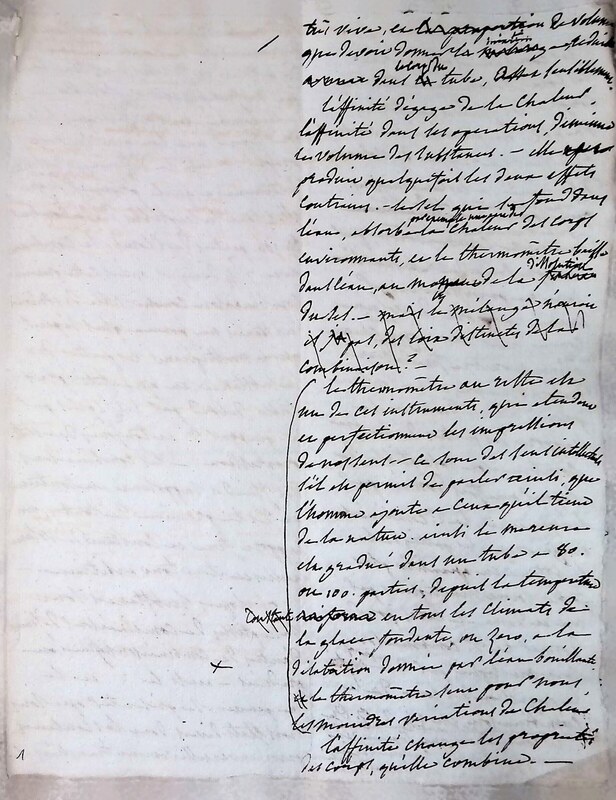 très vive, et la proportion de volume
que devoit donner la
dans le tube,
l'affinité dégage de la Chaleur.
l'affinité dans ses operations, diminue
les volumes des substances. — elle
produit quelquefois les deux effets
contraires. — le sel qui se fond dans
l'eau, absorbe la chaleur des corps
environnants, et le thermomêtre baisse
dans l'eau, au moyen de la dissolution
du sel. — mais le mélange n'auroit
il pas, des loix distinctes de la
combinaison? —
le thermomêtre au reste est
un de ces instruments, qui etendent
et perfectionnent les impressions
de nos sens — ce sont des sens intellectuels
s'il est permit de parler ainsi, que
l'homme ajoute a ceux qu'il tient
de la nature. ainsi le mercure
est gradué dans un tube a 80.
ou 100. parties, depuis la temperature
constante en tous les climats de
la glace fondante, ou Zero, a la
dilatation donnée par l'eau bouillante
le thermomêtre sent pour nous
les moindres variations de Chaleur
l'affinité change les proprietés
des corps, qu'elle combine. —
1